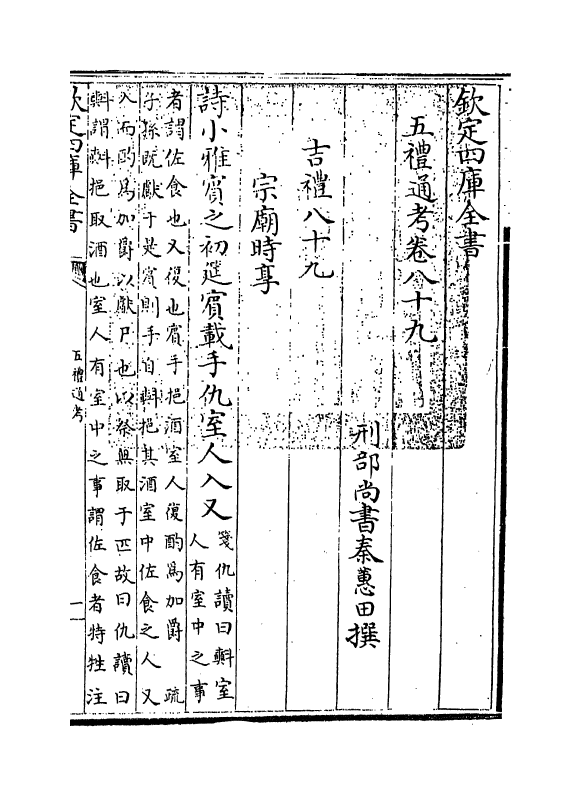 欽定四庫全書
五禮通考卷八十九
刑部尚書秦蕙田撰
吉禮八十九
宗廟時享
詩小雅賓之初筵賓載手仇室人入又
箋仇讀曰㪺室
人有室中之事
者謂佐食也又復也賓手挹酒室人復酌爲加爵 疏
子孫既獻于是賓則手自㪺挹其酒室中佐食之人又
入而酌爲加爵以獻尸也以祭無取于匹故曰仇讀曰
㪺謂㪺挹取酒也室人有室中之事謂佐食者特牲注
欽定四庫全書
五禮通考
一